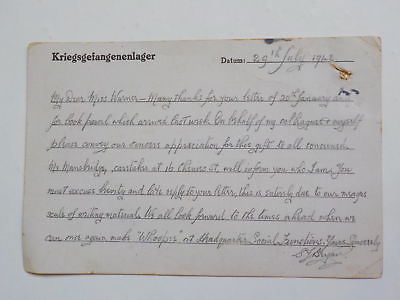 Kriegsgefangenenlager Datum: 29th July 1942
My Dear Miss Warner – Many thanks for your letter of 20th January and
for book parcel which arrived last week. On behalf of my colleagues & myself
please convey our sincere appreciation for this gift to all concerned.
Mr Mansbridge, caretaker at 16 Street, will inform you who I am. You
must excuse brevity and late reply to your letter, this is entirely due to our meagre
scale of writing material. We all look forward to the times ahead when we
can once again make "Whoopee" at Headquarters Social Functions. Yours Sincerely